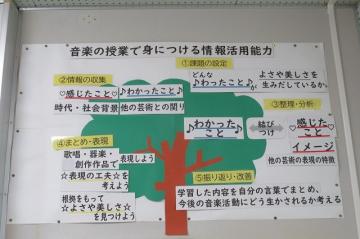 音楽の授業で身につける情報活用能力
①課題の設定
どんな
♪わかったこと♪が
よさや美しさを
生みだしているか。
②情報の収集
♡感じたこと♡
♪わかったこと♪
時代・社会背景
他の芸術との関り
③整理・分析
♪わかった
こと♪
結び
つけ
♡感じた
こと♡
イメージ
他の芸術の表現の特徴
④まとめ・表現
歌唱・器楽・
創作作品で表現しよう
☆表現の工夫☆を
考えよう
根拠をもって
☆よさや美しさ☆
を見つけよう
⑤振り返り・改善
学習した内容を自分の言葉でまとめ、
今後の音楽活動にどう生かされるか考える